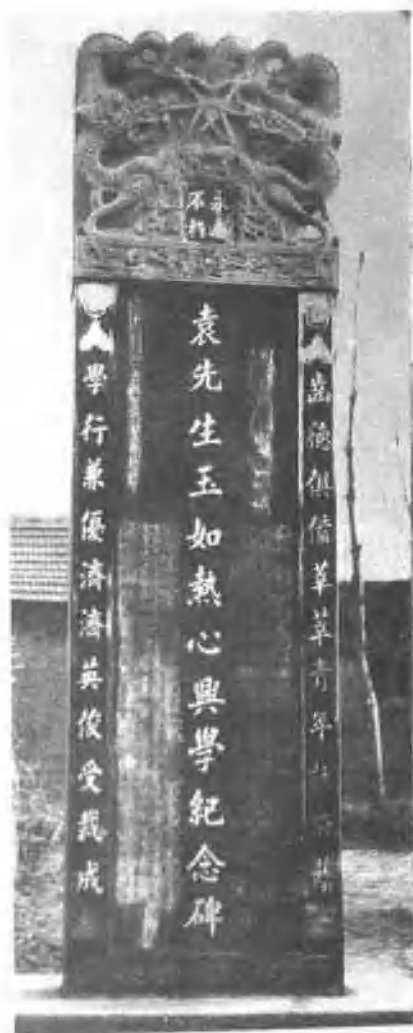 永垂
不朽
齒德俱備莘莘青年
袁先生玉如熱心興學紀念碑
學行兼優濟濟英俊受裁成